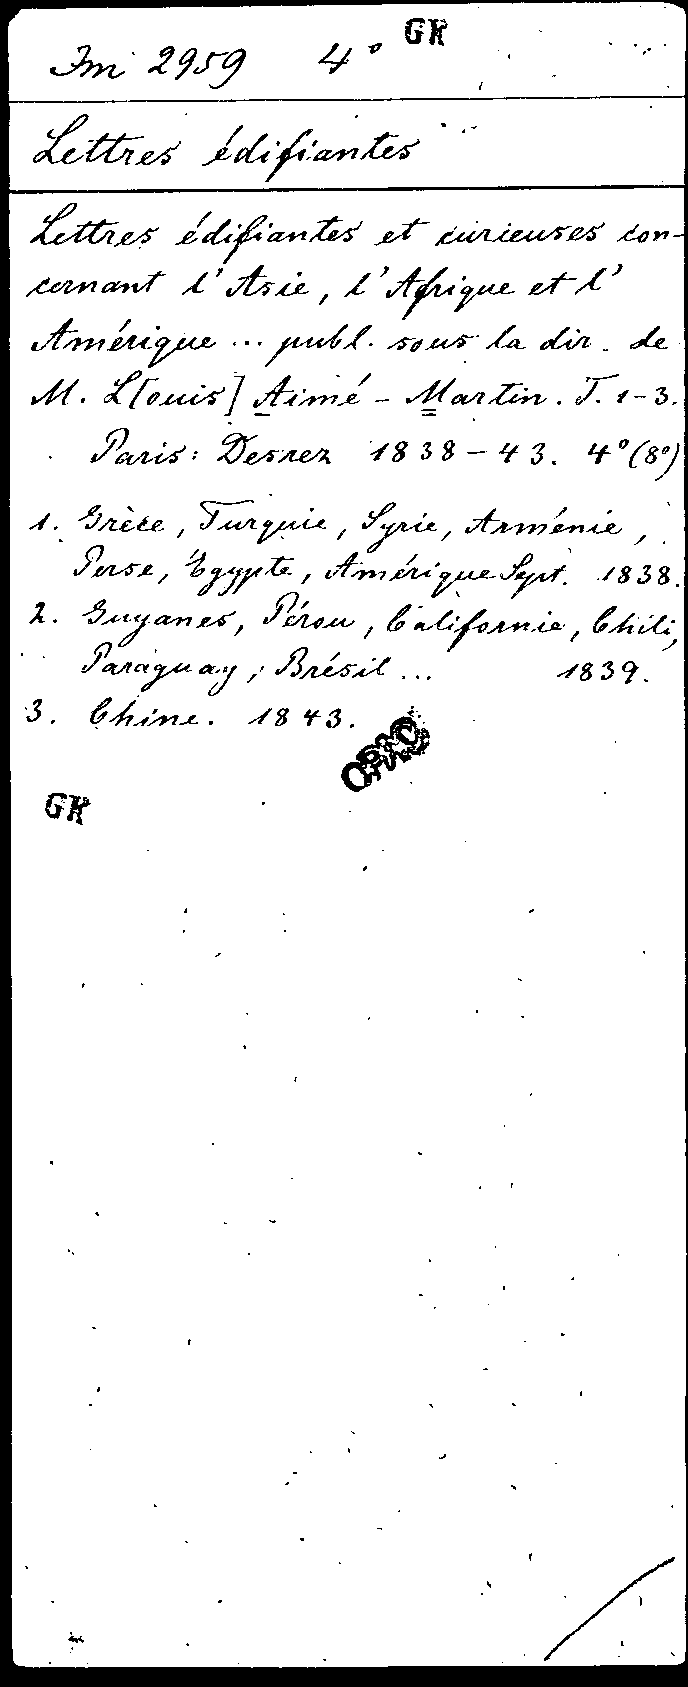 Im 2959 4° GK
Lettres édifiantes
Lettres édifiantes et curieuses con-
cernant l'Asie, l'Afrique et l'
Amérique ... publ. sous la dir. de
M. L[ouis] Aimé-Martin. T. 1-3.
Paris: Desrez 1838-43. 4° (8°)
1. Grèce, Turquie, Syrie, Arménie,
Perse, Egypte, Amérique Sept. 1838.
2. Guyanes, Pérou, Californie, Chili,
Paraguay, Brésil ... 1839.
3. Chine. 1843.
OPAC
GK